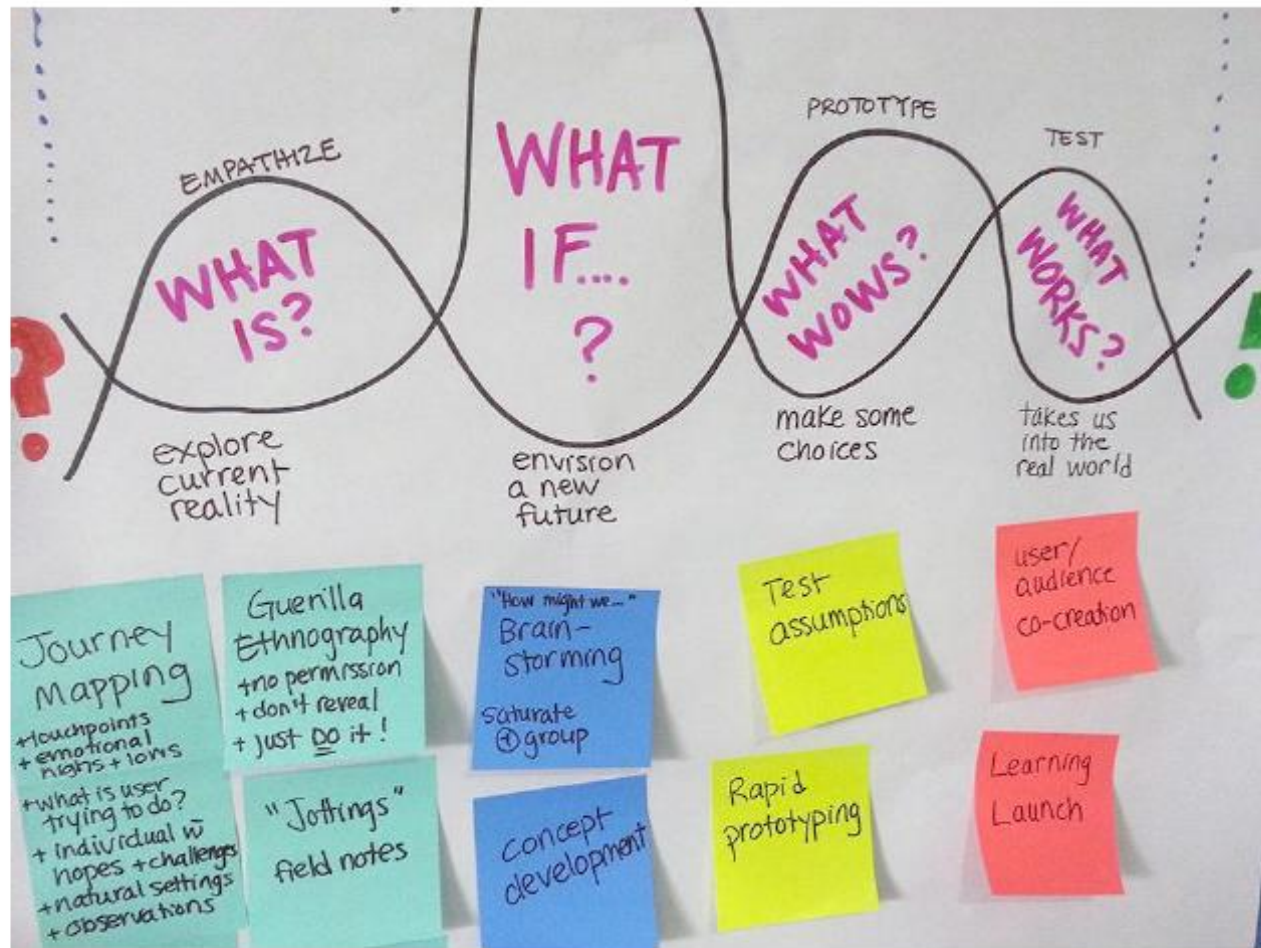 EMPATHIZE
WHAT
IS?
explore
current
reality
WHAT
IF....
?
envision
a new
future
PROTOTYPE
WHAT
WOWS?
make some
choices
TEST
WHAT
WORKS?
takes us
into the
real world
?
!
Journey
Mapping
+touchpoints
+ emotional
highs + lows
+what is user
trying to do?
+ individual w
hopes + challenges
+natural settings
+observations
Guerilla
Ethnography
+no permission
+ don't reveal
+ just DO it!
"Jottings"
field notes
"How might we..."
Brain-
storming
saturate
+ group
concept
development
Test
assumptions
Rapid
prototyping
user/
audience
co-creation
Learning
Launch